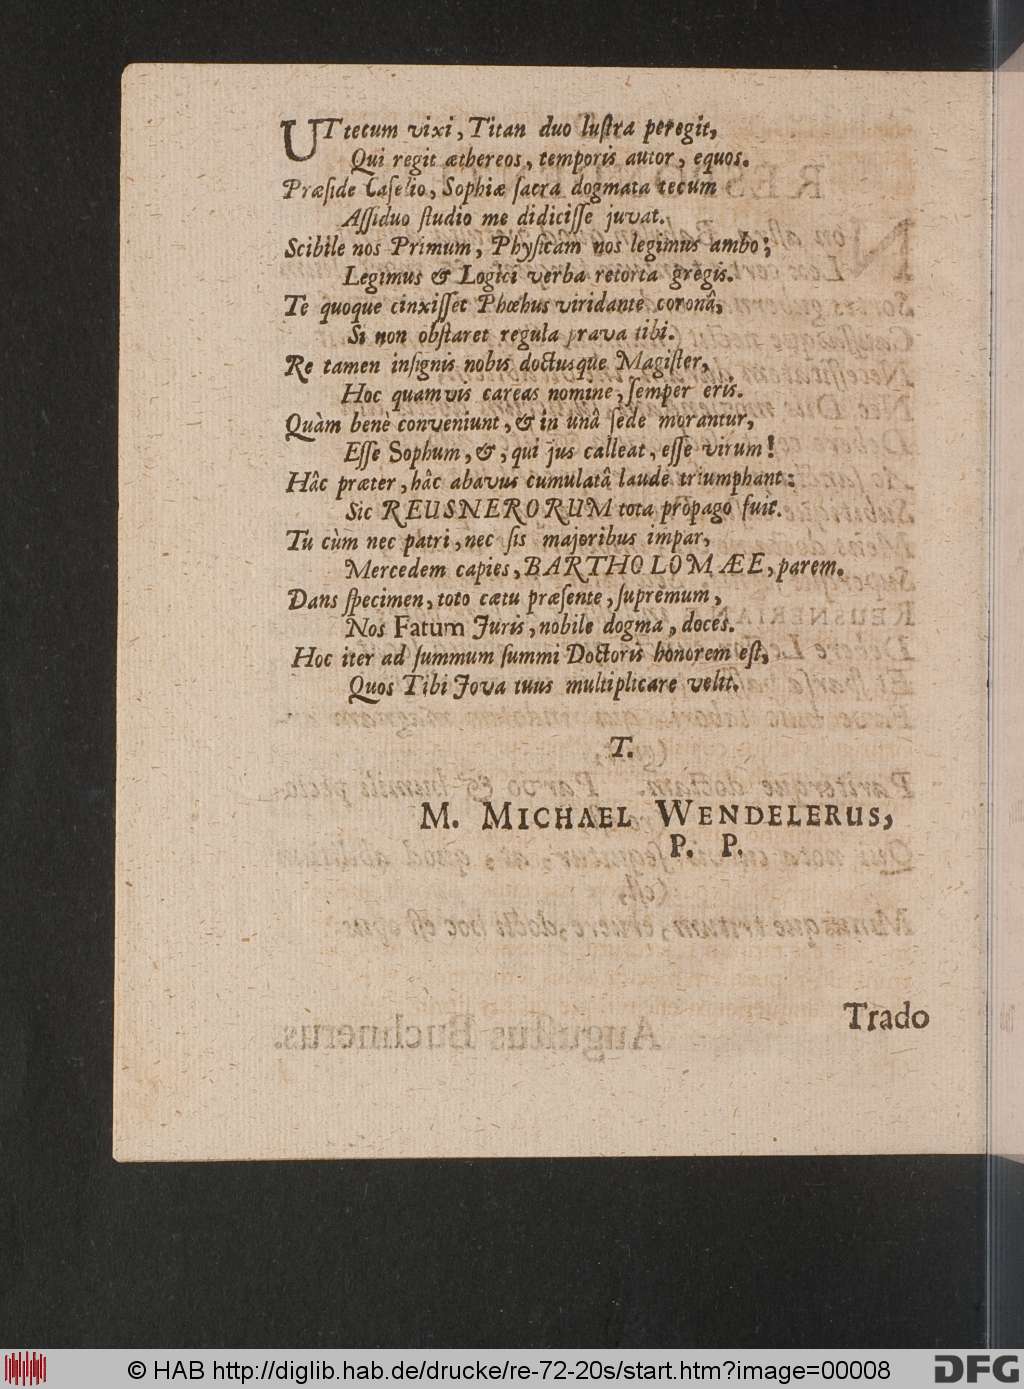 UT tecum vixi, Titan duo luſtra peregit,
Qui regit æthereos, temporis autor, equos.
Præſide Caſelio, Sophiæ ſacra dogmata tecum
Aſſiduo ſtudio me didiciſſe juvat.
Scibile nos Primum, Phyſicam nos legimus ambo;
Legimus & Logici verba retorta gregis.
Te quoque cinxiſſet Phœbus viridante coronâ,
Si non obſtaret regula prava tibi.
Re tamen inſignis nobis doctusque Magiſter,
Hoc quamvis careas nomine, ſemper eris.
Quàm benè conveniunt, & in unâ ſede morantur,
Eſſe Sophum, &, qui jus calleat, eſſe virum!
Hâc præter, hâc abavus cumulatâ laude triumphant:
Sic REUSNERORUM tota propago fuit.
Tu cùm nec patri, nec ſis majoribus impar,
Mercedem capies, BARTHOLOMÆE, parem.
Dans ſpecimen, toto cætu præſente, ſupremum,
Nos Fatum Juris, nobile dogma, doces.
Hoc iter ad ſummum ſummi Doctoris honorem eſt,
Quos Tibi Jova tuus multiplicare velit.
T.
M. MICHAEL WENDELERUS,
P. P.
Trado
© HAB http://diglib.hab.de/drucke/re-72-20s/start.htm?image=00008
DFG